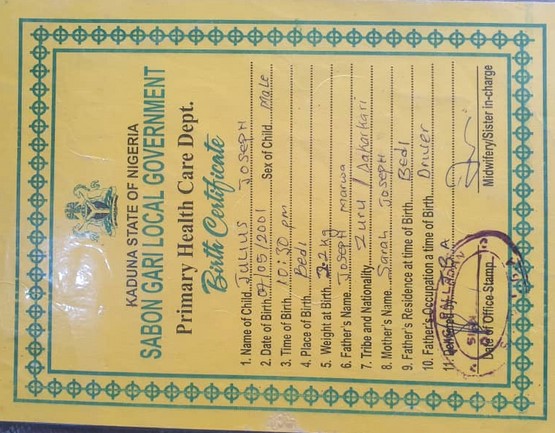 KADUNA STATE OF NIGERIA
SABON GARI LOCAL GOVERNMENT
Primary Health Care Dept.
Birth Certificate
1. Name of Child...JULIUS JOSEPH
2. Date of Birth 07/05/2001 Sex of Child...Male
3. Time of Birth...10:30 pm
4. Place of Birth...Bedi
5. Weight at Birth...2.2kg
6. Father's Name...Joseph Marwa
7. Tribe and Nationality...Zuru / Dakarkari
8. Mother's Name...Sarah Joseph
9. Father's Residence at time of Birth...Bedi
10. Father's Occupation a time of Birth...Driver
11.
Date of Office Stamp
Midwifery/Sister In-charge